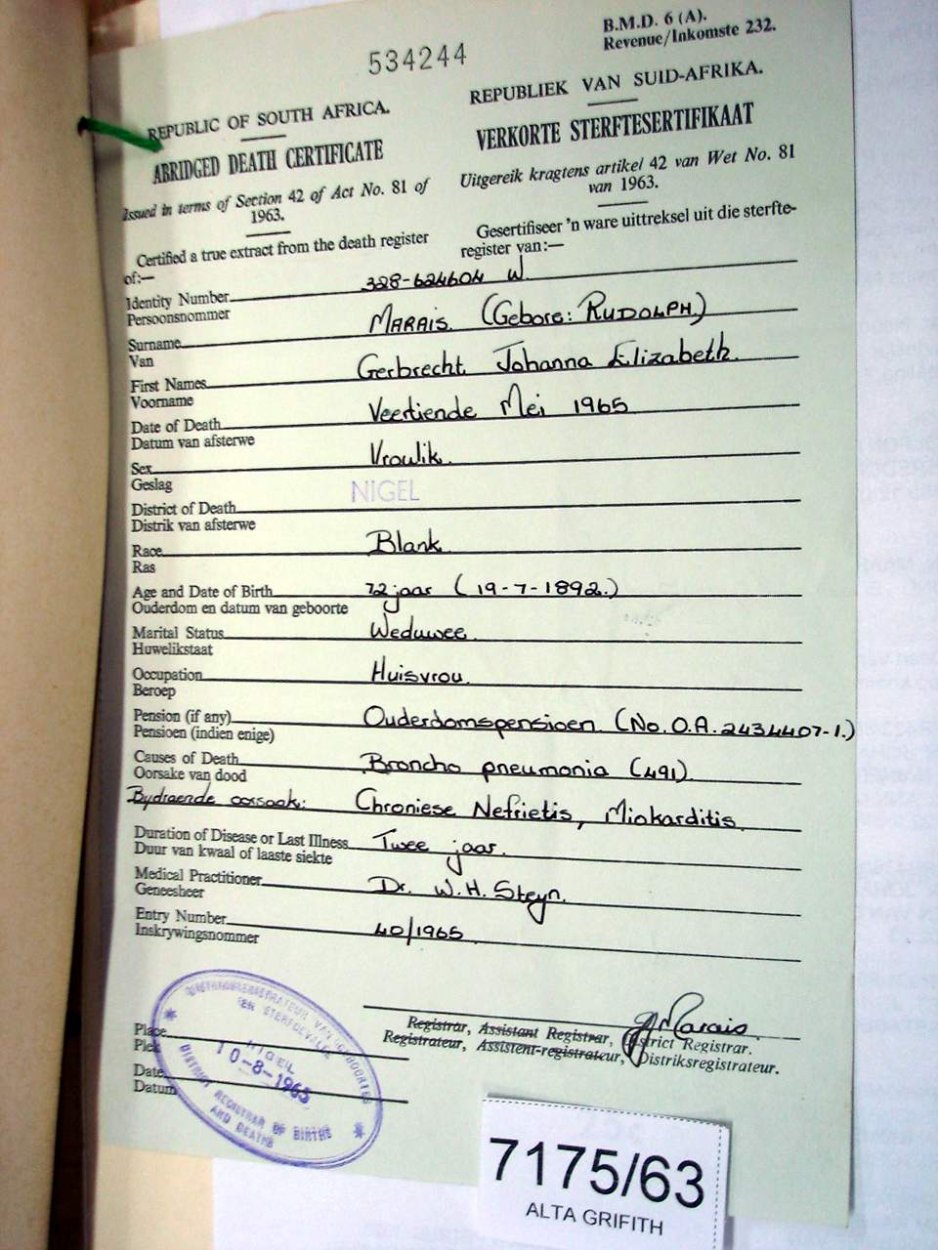 534244
B.M.D. 6 (A).
Revenue/Inkomste 232.
REPUBLIC OF SOUTH AFRICA.
ABRIDGED DEATH CERTIFICATE
Issued in terms of Section 42 of Act No. 81 of
1963.
Certified a true extract from the death register
of:—
REPUBLIEK VAN SUID-AFRIKA.
VERKORTE STERFTESERTIFIKAAT
Uitgereik kragtens artikel 42 van Wet No. 81
van 1963.
Gesertifiseer 'n ware uittreksel uit die sterfte-
register van:—
Identity Number 328-624604 W.
Persoonsnommer
Surname MARAIS. (Gebore: RUDOLPH.)
Van
First Names Gerbrecht Johanna Elizabeth.
Voorname
Date of Death Veertiende Mei 1965
Datum van afsterwe
Sex Vroulik.
Geslag
District of Death NIGEL
Distrik van afsterwe
Race Blank.
Ras
Age and Date of Birth 72 jaar (19-7-1892.)
Ouderdom en datum van geboorte
Marital Status Weduwee.
Huwelikstaat
Occupation Huisvrou.
Beroep
Pension (if any) Ouderdomspensioen. (No. O.A. 2434407-1.)
Pensioen (indien enige)
Causes of Death Broncho pneumonia (491).
Oorsake van dood
Bydraende oorsaak: Chroniese Nefrietis, Miokarditis.
Duration of Disease or Last Illness Twee jaar.
Duur van kwaal of laaste siekte
Medical Practitioner Dr. W.H. Steyn.
Geneesheer
Entry Number 40/1965
Inskrywingsnommer
Marais
Registrar, Assistant Registrar, District Registrar.
Registrateur, Assistent-registrateur, Distriksregistrateur.
Place
Plek
Date
Datum
EN STERFGEVALLE
NIGEL
10-8-1965
DISTRICT REGISTRAR OF BIRTHS
AND DEATHS
7175/63
ALTA GRIFITH